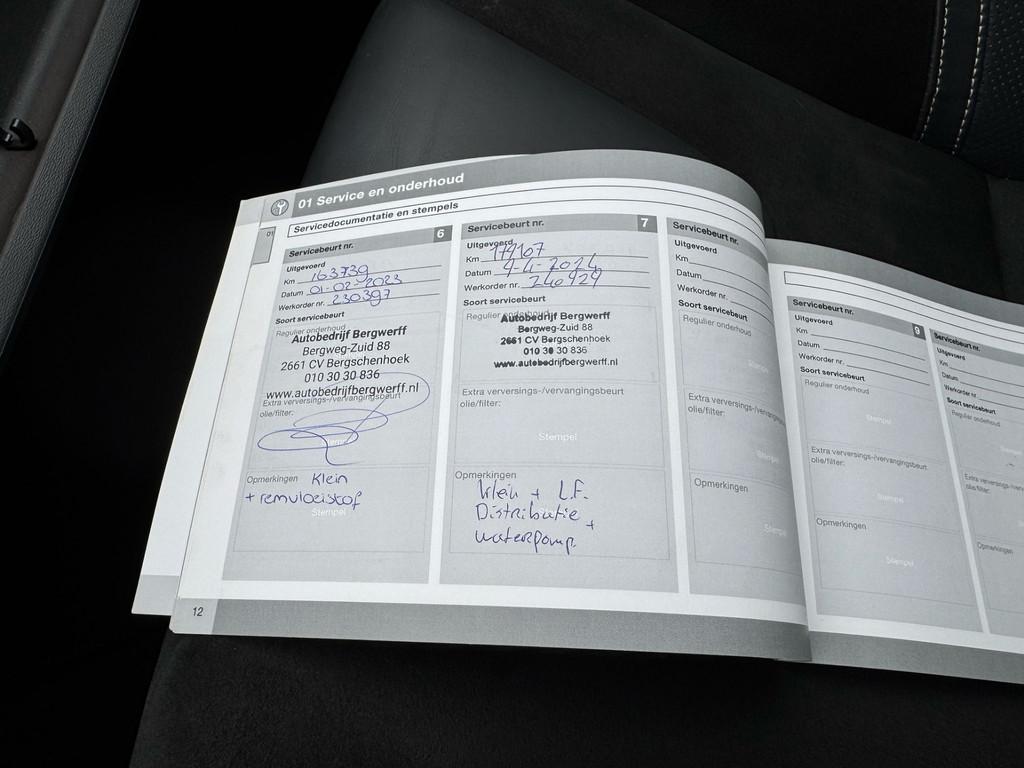 01 Service en onderhoud
Servicedocumentatie en stempels
01
Servicebeurt nr. 6
Uitgevoerd
Km 163739
Datum 01-02-2023
Werkorder nr. 230397
Soort servicebeurt
Regulier onderhoud
Autobedrijf Bergwerff
Bergweg-Zuid 88
2661 CV Bergschenhoek
010 30 30 836
www.autobedrijfbergwerff.nl
Extra verversings-/vervangingsbeurt
olie/filter:
Stempel
Opmerkingen Klein
+ remvloeistof
Stempel
Servicebeurt nr. 7
Uitgevoerd
Km 179107
Datum 9-4-2024
Werkorder nr. 240929
Soort servicebeurt
Regulier onderhoud
Autobedrijf Bergwerff
Bergweg-Zuid 88
2661 CV Bergschenhoek
010 30 30 836
www.autobedrijfbergwerff.nl
Extra verversings-/vervangingsbeurt
olie/filter:
Stempel
Opmerkingen
klein + L.F.
Distributie +
waterpomp.
Servicebeurt nr.
Uitgevoerd
Km
Datum
Werkorder nr.
Soort servicebeurt
Regulier onderhoud
Extra verversings-/vervangings
olie/filter:
Opmerkingen
12
Servicebeurt nr. 9
Uitgevoerd
Km
Datum
Werkorder nr.
Soort servicebeurt
Regulier onderhoud
Stempel
Extra verversings-/vervangingsbeurt
olie/filter:
Stempel
Opmerkingen
Stempel
Servicebeurt nr.
Uitgevoerd
Km
Datum
Werkorder nr.
Soort servicebeurt
Regulier onderhoud
Extra verversings-/vervang
olie/filter:
Opmerkingen